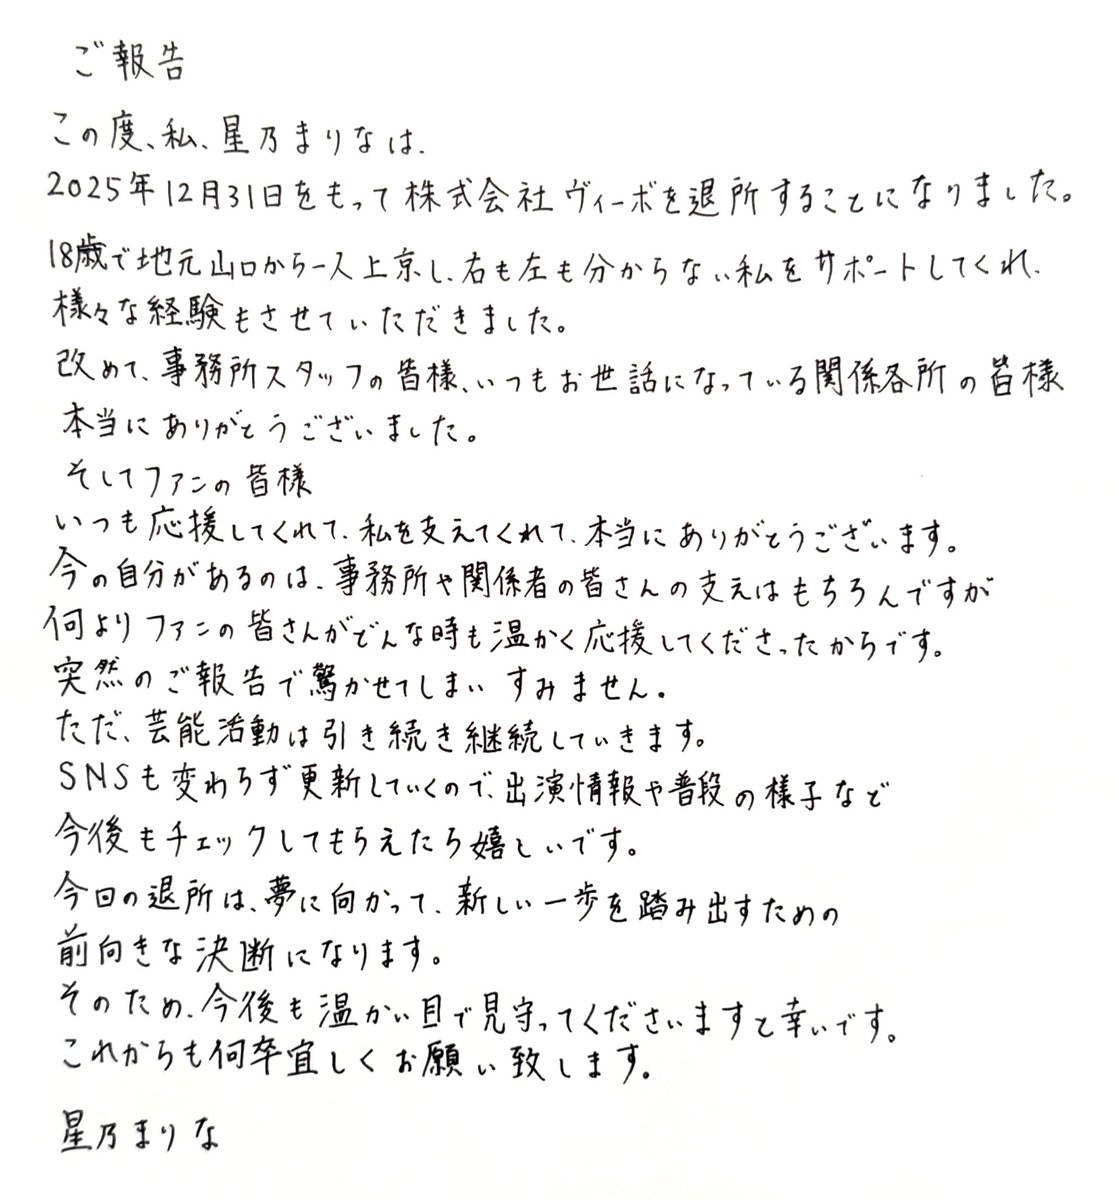 ご報告
この度、私、星乃まりなは、
2025年12月31日をもって株式会社ヴィーボを退所することになりました。
18歳で地元山口から一人上京し、右も左も分からない私をサポートしてくれ、
様々な経験もさせていただきました。
改めて、事務所スタッフの皆様、いつもお世話になっている関係各所の皆様
本当にありがとうございました。
そしてファンの皆様
いつも応援してくれて、私を支えてくれて、本当にありがとうございます。
今の自分があるのは、事務所や関係者の皆さんの支えはもちろんですが
何よりファンの皆さんがどんな時も温かく応援してくださったからです。
突然のご報告で驚かせてしまいすみません。
ただ、芸能活動は引き続き継続していきます。
SNSも変わらず更新していくので、出演情報や普段の様子など
今後もチェックしてもらえたら嬉しいです。
今回の退所は、夢に向かって、新しい一歩を踏み出すための
前向きな決断になります。
そのため、今後も温かい目で見守ってくださいますと幸いです。
これからも何卒宜しくお願い致します。
星乃まりな